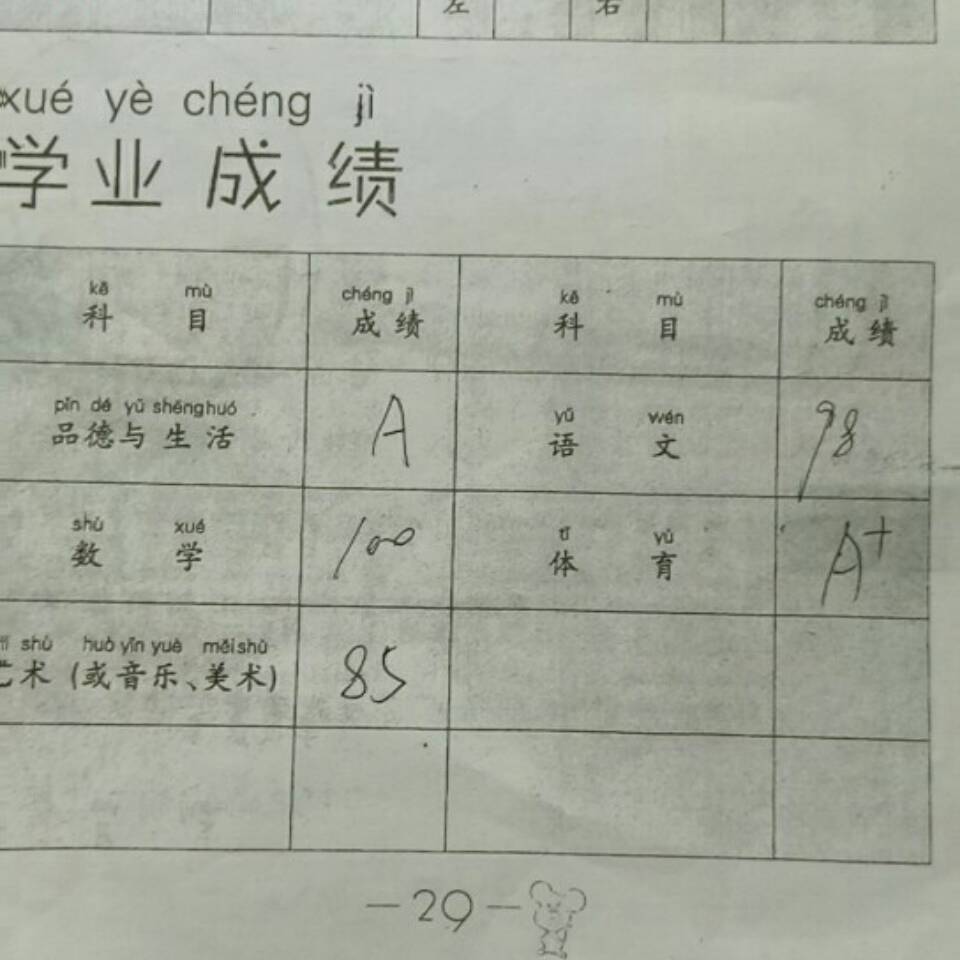 左 右
xué yè chéng jì
学业成绩
kē mù chéng jì kē mù chéng jì
科 目 成绩 科 目 成绩
pǐn dé yǔ shēng huó yǔ wén
品德与生活 A 语 文 98
shù xué tǐ yù
数 学 100 体 育 A+
shù huò yīn yuè měi shù
术(或音乐、美术) 85
-29-